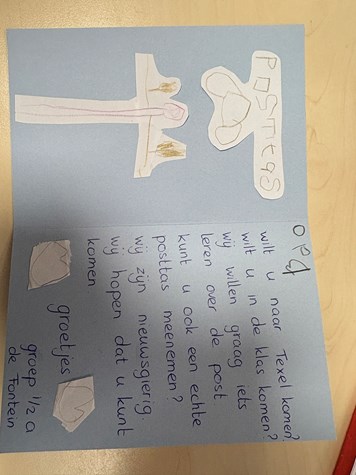 POSTTAS
opa
wilt u naar Texel komen?
wilt u in de klas komen?
wij willen graag iets
leren over de post
kunt u ook een echte
posttas meenemen?
wij zijn nieuwsgierig.
wij hopen dat u kunt
komen
groetjes
groep 1/2 a
de Fontein